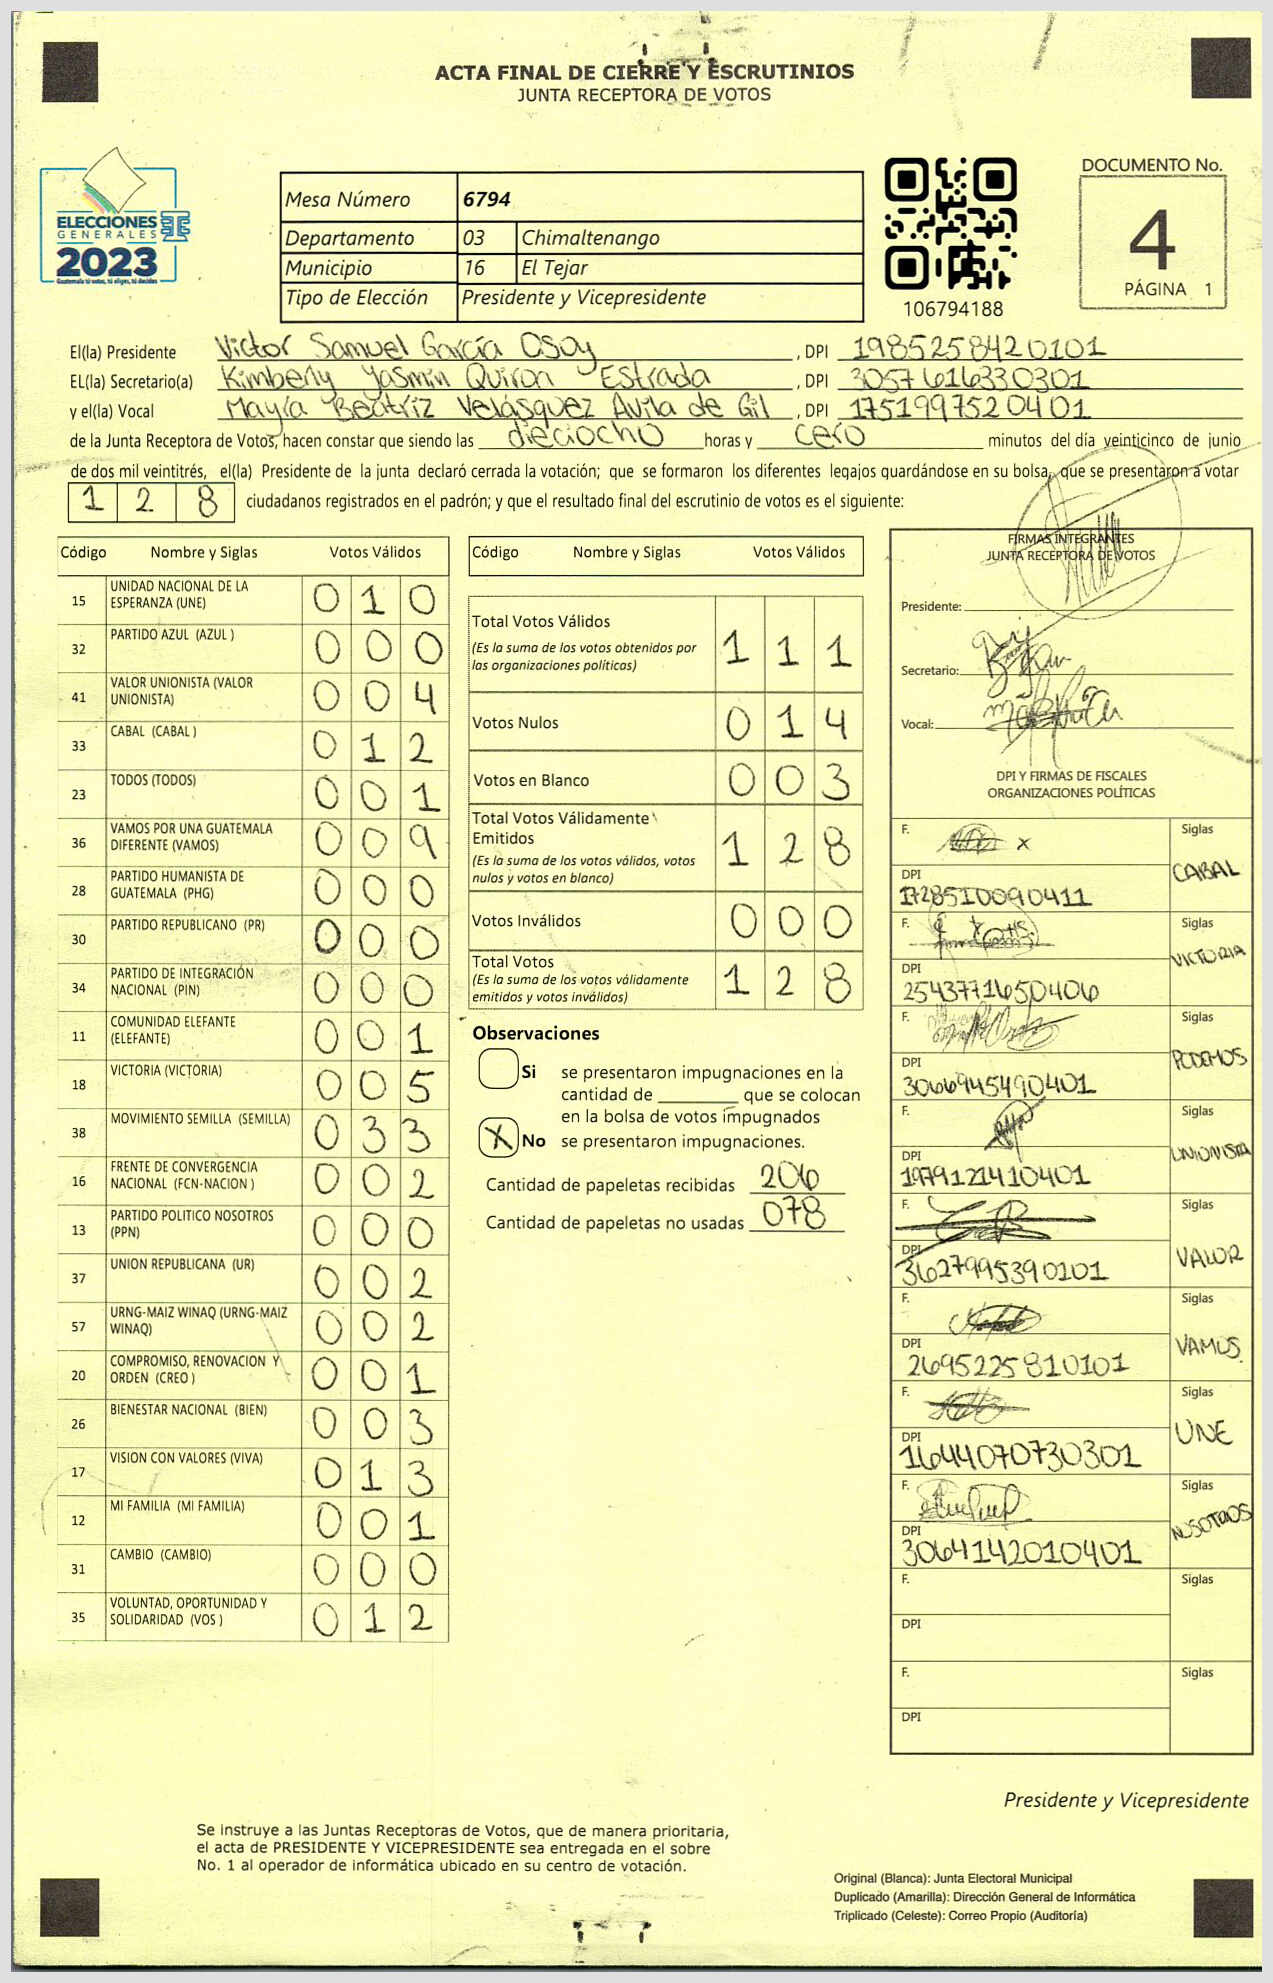 ACTA FINAL DE CIERRE Y ESCRUTINIOS
JUNTA RECEPTORA DE VOTOS
ELECCIONES
GENERALES
2023
Guatemala tú votas, tú eliges, tú decides
Mesa Número 6794
Departamento 03 Chimaltenango
Municipio 16 El Tejar
Tipo de Elección Presidente y Vicepresidente
106794188
DOCUMENTO No.
4
PÁGINA 1
El(la) Presidente Victor Samuel García Osoy , DPI 1985258420101
EL(la) Secretario(a) Kimberly Yasmin Quiron Estrada , DPI 3057616330301
y el(la) Vocal Mayra Beatriz Velásquez Avila de Gil , DPI 1751997520401
de la Junta Receptora de Votos, hacen constar que siendo las dieciocho horas y cero minutos del día veinticinco de junio
de dos mil veintitrés, el(la) Presidente de la junta declaró cerrada la votación; que se formaron los diferentes legajos guardándose en su bolsa, que se presentaron a votar
128 ciudadanos registrados en el padrón; y que el resultado final del escrutinio de votos es el siguiente:
Código Nombre y Siglas Votos Válidos
15 UNIDAD NACIONAL DE LA ESPERANZA (UNE) 010
32 PARTIDO AZUL (AZUL ) 000
41 VALOR UNIONISTA (VALOR UNIONISTA) 004
33 CABAL (CABAL ) 012
23 TODOS (TODOS) 001
36 VAMOS POR UNA GUATEMALA DIFERENTE (VAMOS) 009
28 PARTIDO HUMANISTA DE GUATEMALA (PHG) 000
30 PARTIDO REPUBLICANO (PR) 000
34 PARTIDO DE INTEGRACIÓN NACIONAL (PIN) 000
11 COMUNIDAD ELEFANTE (ELEFANTE) 001
18 VICTORIA (VICTORIA) 005
38 MOVIMIENTO SEMILLA (SEMILLA) 033
16 FRENTE DE CONVERGENCIA NACIONAL (FCN-NACION ) 002
13 PARTIDO POLITICO NOSOTROS (PPN) 000
37 UNION REPUBLICANA (UR) 002
57 URNG-MAIZ WINAQ (URNG-MAIZ WINAQ) 002
20 COMPROMISO, RENOVACION Y ORDEN (CREO ) 001
26 BIENESTAR NACIONAL (BIEN) 003
17 VISION CON VALORES (VIVA) 013
12 MI FAMILIA (MI FAMILIA) 001
31 CAMBIO (CAMBIO) 000
35 VOLUNTAD, OPORTUNIDAD Y SOLIDARIDAD (VOS ) 012
Código Nombre y Siglas Votos Válidos
Total Votos Válidos 111
(Es la suma de los votos obtenidos por
las organizaciones políticas)
Votos Nulos 014
Votos en Blanco 003
Total Votos Válidamente
Emitidos 128
(Es la suma de los votos válidos, votos
nulos y votos en blanco)
Votos Inválidos 000
Total Votos 128
(Es la suma de los votos válidamente
emitidos y votos inválidos)
Observaciones
Si se presentaron impugnaciones en la
cantidad de ________ que se colocan
en la bolsa de votos impugnados
X No se presentaron impugnaciones.
Cantidad de papeletas recibidas 206
Cantidad de papeletas no usadas 078
FIRMAS INTEGRANTES
JUNTA RECEPTORA DE VOTOS
Presidente:
Secretario:
Vocal:
DPI Y FIRMAS DE FISCALES
ORGANIZACIONES POLÍTICAS
F. x Siglas
DPI CABAL
1728510090411
F. Siglas
DPI VICTORIA
2543771650406
F. Siglas
DPI PODEMOS
3066945490401
F. Siglas
DPI UNIONISTA
1979121410401
F. Siglas
DPI VALOR
3627995390101
F. Siglas
DPI VAMOS
2695225810101
F. Siglas
DPI UNE
1644070730301
F. Siglas
DPI NOSOTROS
3064142010401
F. Siglas
DPI
F. Siglas
DPI
Presidente y Vicepresidente
Se instruye a las Juntas Receptoras de Votos, que de manera prioritaria,
el acta de PRESIDENTE Y VICEPRESIDENTE sea entregada en el sobre
No. 1 al operador de informática ubicado en su centro de votación.
Original (Blanca): Junta Electoral Municipal
Duplicado (Amarilla): Dirección General de Informática
Triplicado (Celeste): Correo Propio (Auditoría)